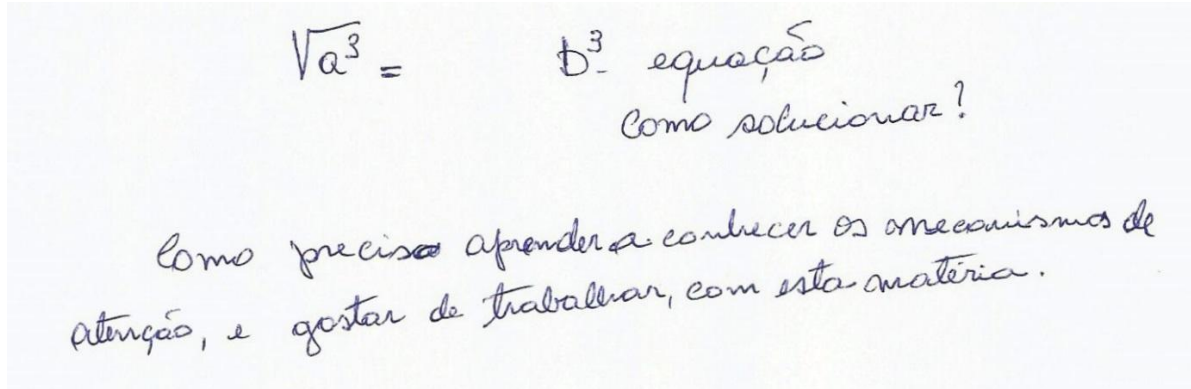 √a³ = b³ equação
como solucionar?
Como preciso aprender a conhecer os mecanismos de
atenção, e gostar de trabalhar, com esta matéria.